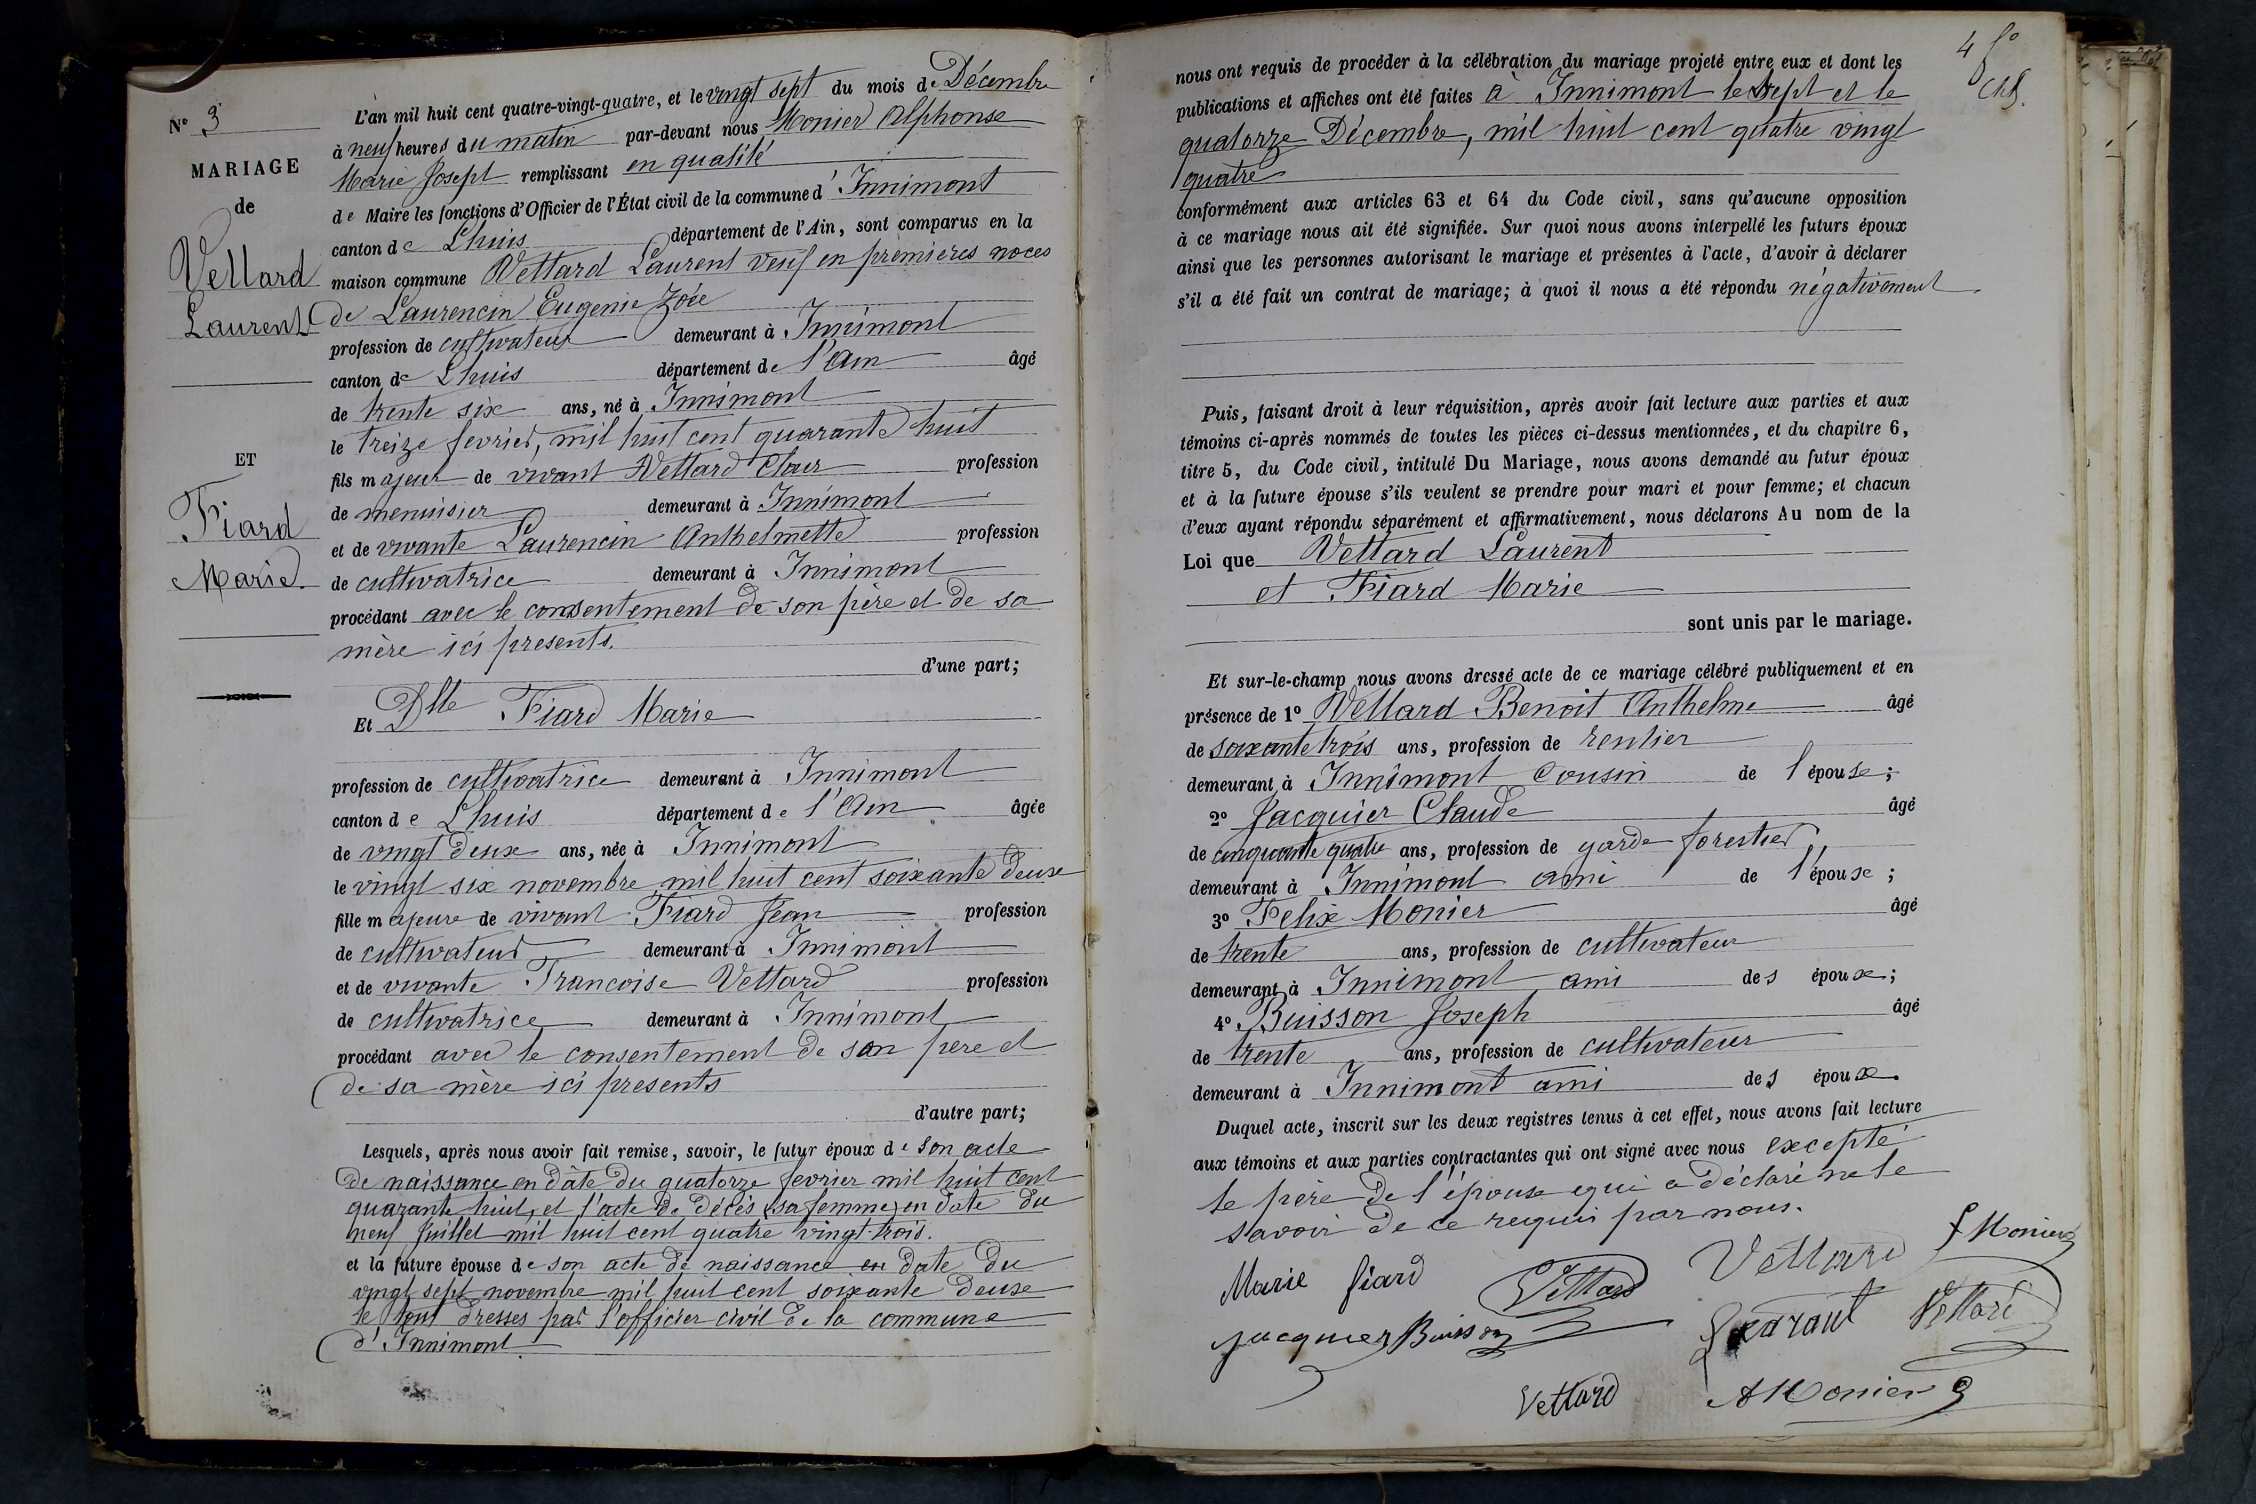 N° 3
MARIAGE
de
Vettard
Laurent
ET
Fiard
Marie
L'an mil huit cent quatre-vingt-quatre, et le vingt sept du mois de Décembre
à neuf heures du matin par-devant nous Monier Alphonse
Marie Joseph remplissant en qualité
de Maire les fonctions d'Officier de l'État civil de la commune d'Innimont
canton de Lhuis département de l'Ain, sont comparus en la
maison commune Vettard Laurent veuf en premières noces
de Laurencin Eugenie Zoée
profession de cultivateur demeurant à Innimont
canton de Lhuis département de l'Ain âgé
de trente six ans, né à Innimont
le treize fevrier, mil huit cent quarante huit
fils majeur de vivant Vettard Claur profession
de menuisier demeurant à Innimont
et de vivante Laurencin Anthelmette profession
de cultivatrice demeurant à Innimont
procédant avec le consentement de son père et de sa
mère ici presents.
d'une part;
Et Dlle Fiard Marie
profession de cultivatrice demeurant à Innimont
canton de Lhuis département de l'Ain âgée
de vingt deux ans, née à Innimont
le vingt six novembre mil huit cent soixante deux
fille majeure de vivant Fiard Jean profession
de cultivateur demeurant à Innimont
et de vivante Francoise Vettard profession
de cultivatrice demeurant à Innimont
procédant avec le consentement de son père et
de sa mère ici presents
d'autre part;
Lesquels, après nous avoir fait remise, savoir, le futur époux de son acte
de naissance en date du quatorze fevrier mil huit cent
quarante huit, et l'acte de décès (sa femme) en date du
neuf Juillet mil huit cent quatre vingt-trois.
et la future épouse de son acte de naissance en date du
vingt sept novembre mil huit cent soixante deux
le tout dresses par l'officier civil de la commune
d'Innimont
4 fo
nous ont requis de procéder à la célébration du mariage projeté entre eux et dont les
publications et affiches ont été faites à Innimont le sept et le
quatorze Décembre, mil huit cent quatre vingt
quatre
conformément aux articles 63 et 64 du Code civil, sans qu'aucune opposition
à ce mariage nous ait été signifiée. Sur quoi nous avons interpellé les futurs époux
ainsi que les personnes autorisant le mariage et présentes à l'acte, d'avoir à déclarer
s'il a été fait un contrat de mariage; à quoi il nous a été répondu négativement
Puis, faisant droit à leur réquisition, après avoir fait lecture aux parties et aux
témoins ci-après nommés de toutes les pièces ci-dessus mentionnées, et du chapitre 6,
titre 5, du Code civil, intitulé Du Mariage, nous avons demandé au futur époux
et à la future épouse s'ils veulent se prendre pour mari et pour femme; et chacun
d'eux ayant répondu séparément et affirmativement, nous déclarons Au nom de la
Loi que Vettard Laurent
et Fiard Marie
sont unis par le mariage.
Et sur-le-champ nous avons dressé acte de ce mariage célébré publiquement et en
présence de 1° Vettard Benoit Anthelme âgé
de soixante trois ans, profession de rentier
demeurant à Innimont cousin de l'épouse;
2° Jacquier Claude âgé
de cinquante quatre ans, profession de garde forestier
demeurant à Innimont ami de l'épouse;
3° Felix Monier âgé
de trente ans, profession de cultivateur
demeurant à Innimont ami des époux;
4° Buisson Joseph âgé
de trente ans, profession de cultivateur
demeurant à Innimont ami des époux.
Duquel acte, inscrit sur les deux registres tenus à cet effet, nous avons fait lecture
aux témoins et aux parties contractantes qui ont signé avec nous excepté
le père de l'épouse qui a déclaré ne le
savoir de ce requis par nous.
Marie fiard Vettard Vettard f Monier
Jacquier Buisson Vettard
Vettard A Monier